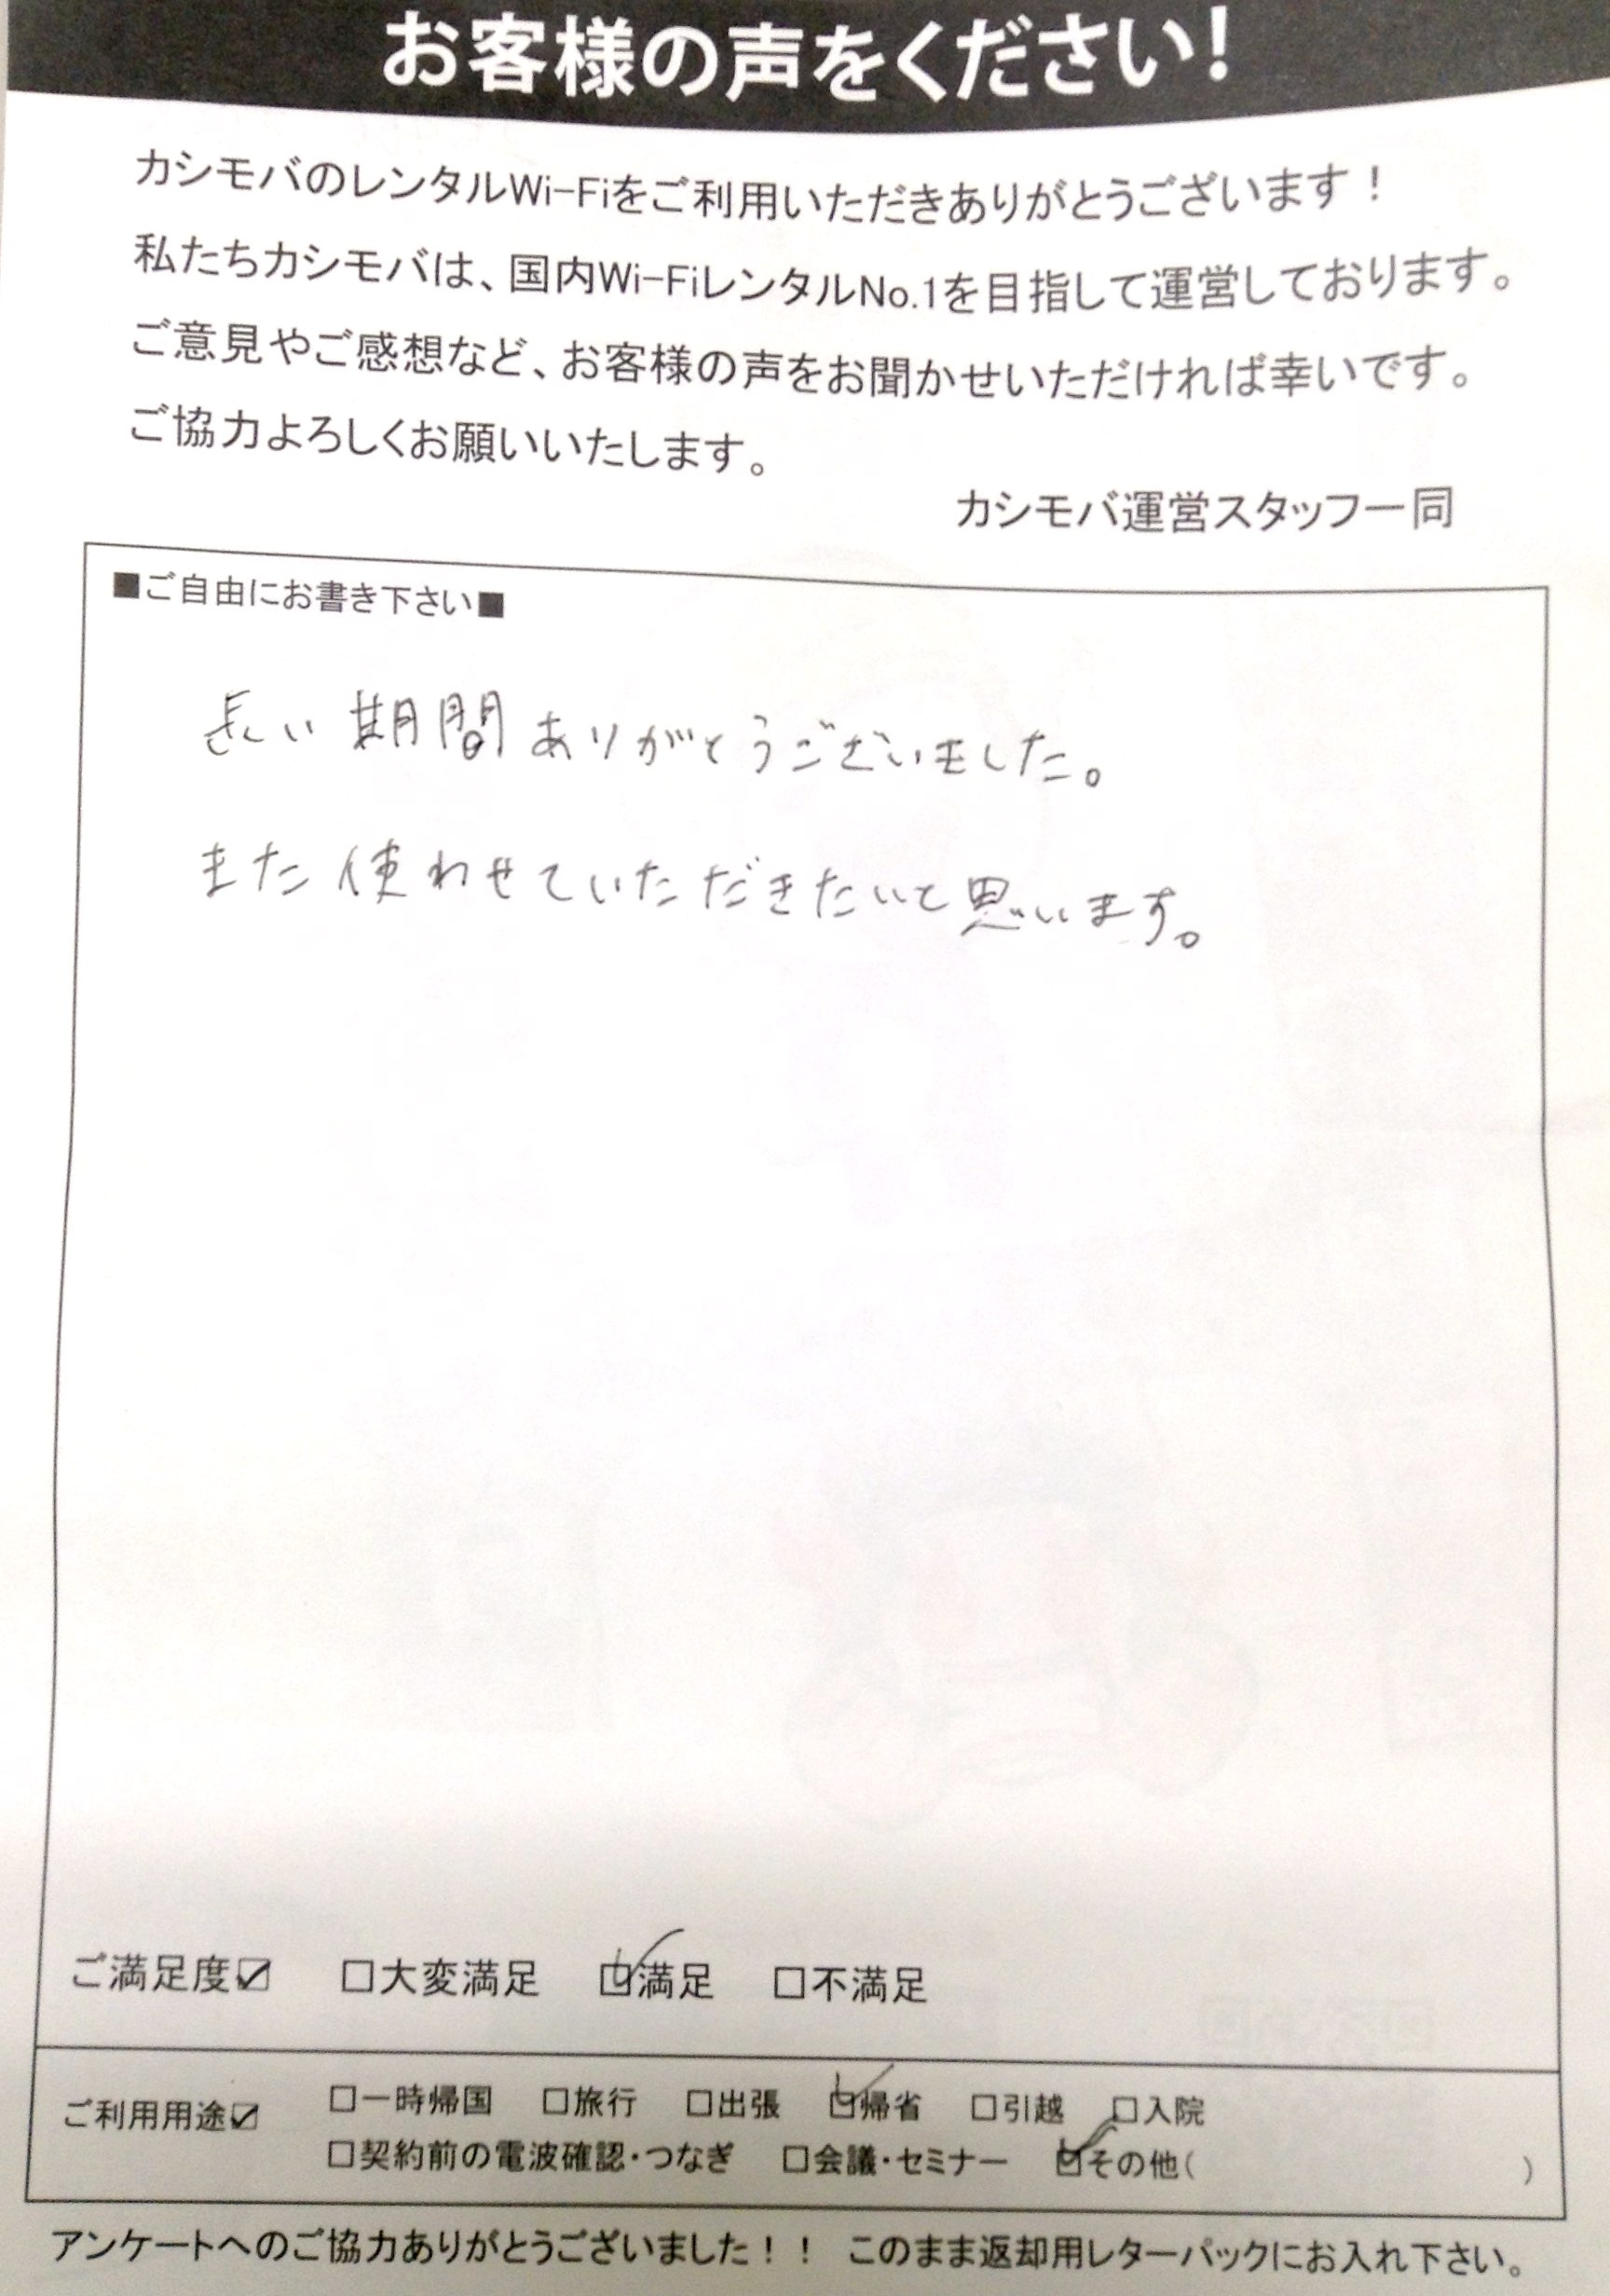 お客様の声をください!
カシモバのレンタルWi-Fiをご利用いただきありがとうございます！
私たちカシモバは、国内Wi-FiレンタルNo.1を目指して運営しております。
ご意見やご感想など、お客様の声をお聞かせいただければ幸いです。
ご協力よろしくお願いいたします。
カシモバ運営スタッフ一同
■ご自由にお書き下さい■
長い期間ありがとうございました。
また使わせていただきたいと思います。
ご満足度☑ □大変満足 ☑満足 □不満足
ご利用用途☑ □一時帰国 □旅行 □出張 ☑帰省 □引越 □入院
□契約前の電波確認・つなぎ □会議・セミナー ☑その他( )
アンケートへのご協力ありがとうございました！！ このまま返却用レターパックにお入れ下さい。